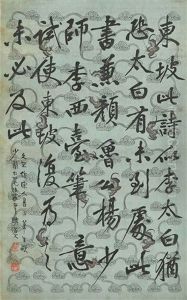 東坡此詩似李太白猶
恐太白有未到處此
書兼顏魯公楊少
師李西臺筆意
試使東坡復為之
未必及此